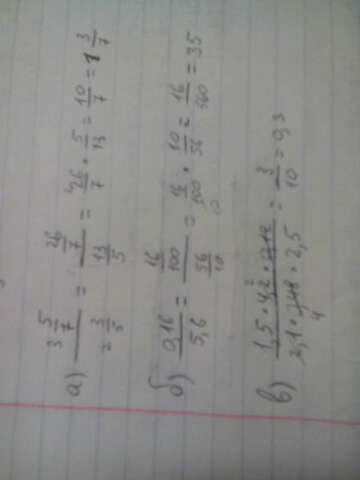 а) (3 5/7)/(2 3/5) = (26/7)/(13/5) = 26/7 · 5/13 = 10/7 = 1 3/7
б) 0,16/5,6 = (16/100)/(56/10) = 16/100 · 10/56 = 16/560 = 35
в) 1,5 · 4,2 · / 2,1 · · 2,5 = 3/10 = 0,3